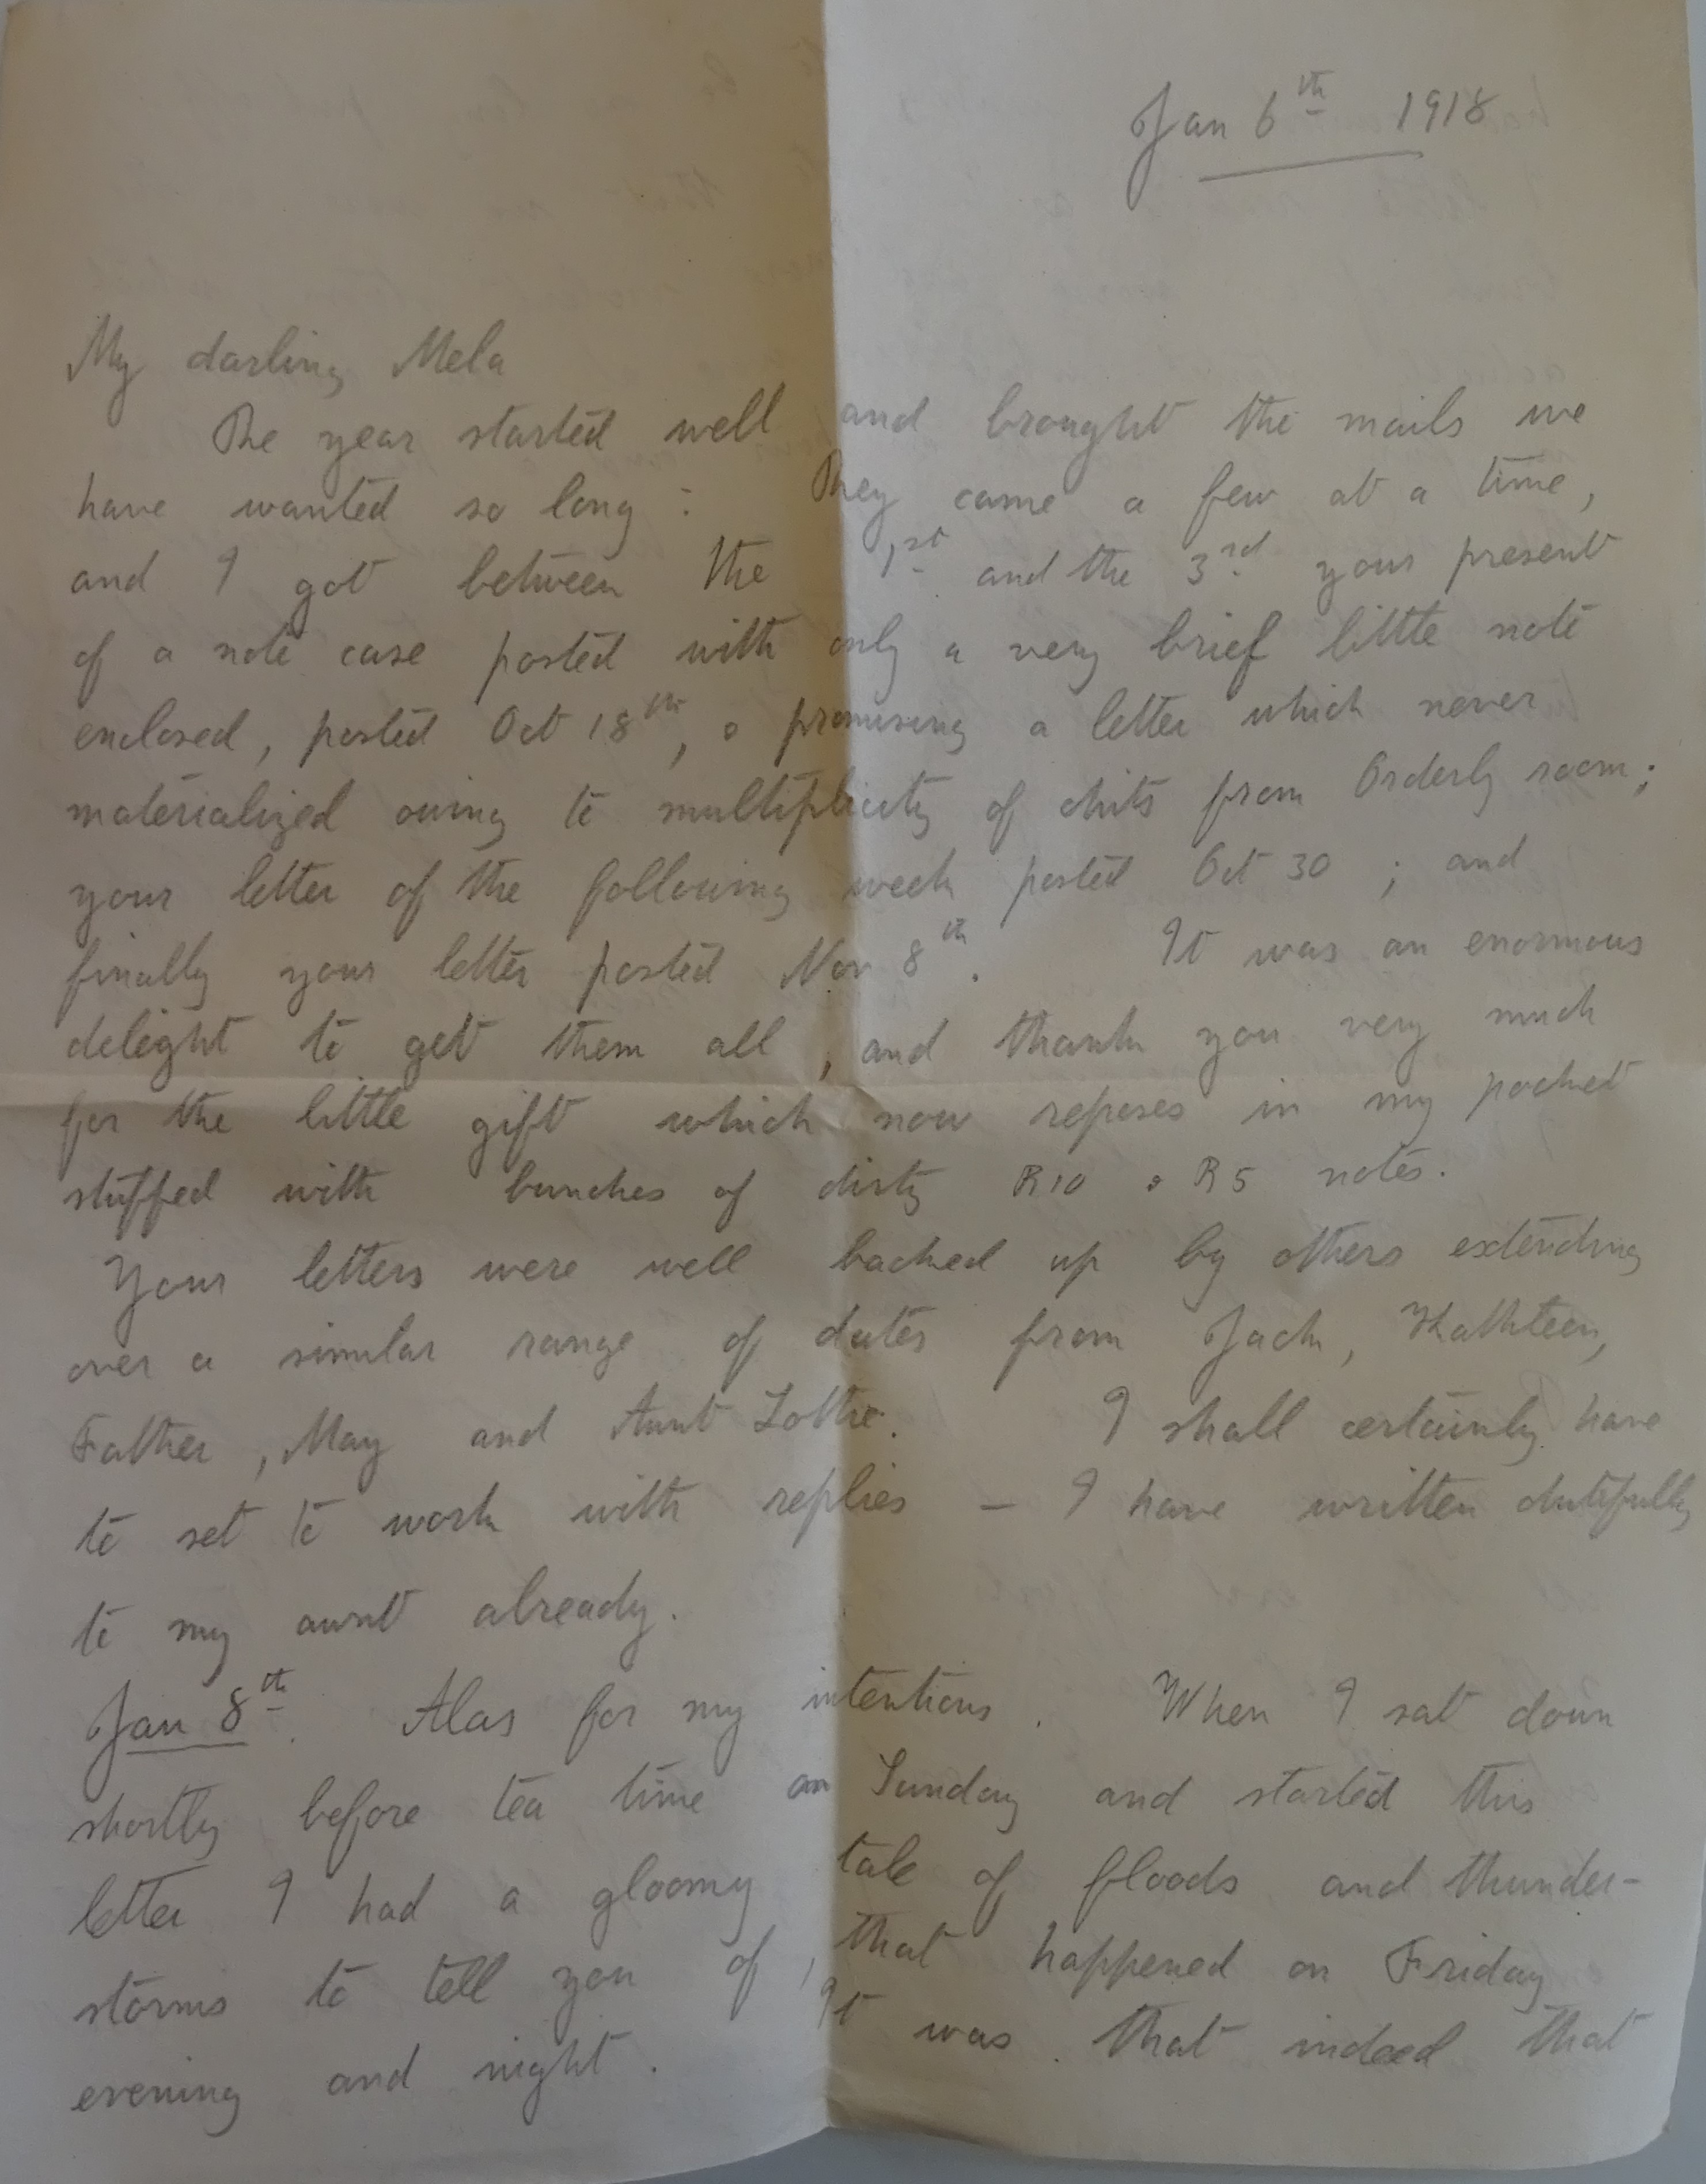 Jan 6th 1918
My darling Mela
The year started well and brought the mails we
have wanted so long : They came a few at a time,
and I got between the 1st and the 3rd your present
of a note case posted with only a very brief little note
enclosed, posted Oct 18th, & promising a letter which never
materialized owing to multiplicity of chits from Orderly room;
your letter of the following week posted Oct 30 ; and
finally your letter posted Nov 8th. It was an enormous
delight to get them all, and thank you very much
for the little gift which now reposes in my pocket
stuffed with bunches of dirty R10 & R5 notes.
Your letters were well backed up by others extending
over a similar range of dates from Jack, Kathleen,
Father, May and Aunt Lottie. I shall certainly have
to set to work with replies — I have written dutifully
to my aunt already.
Jan 8th. Alas for my intentions. When I sat down
shortly before tea time on Sunday and started this
letter I had a gloomy tale of floods and thunder-
storms to tell you of, that happened on Friday
evening and night. It was that indeed that